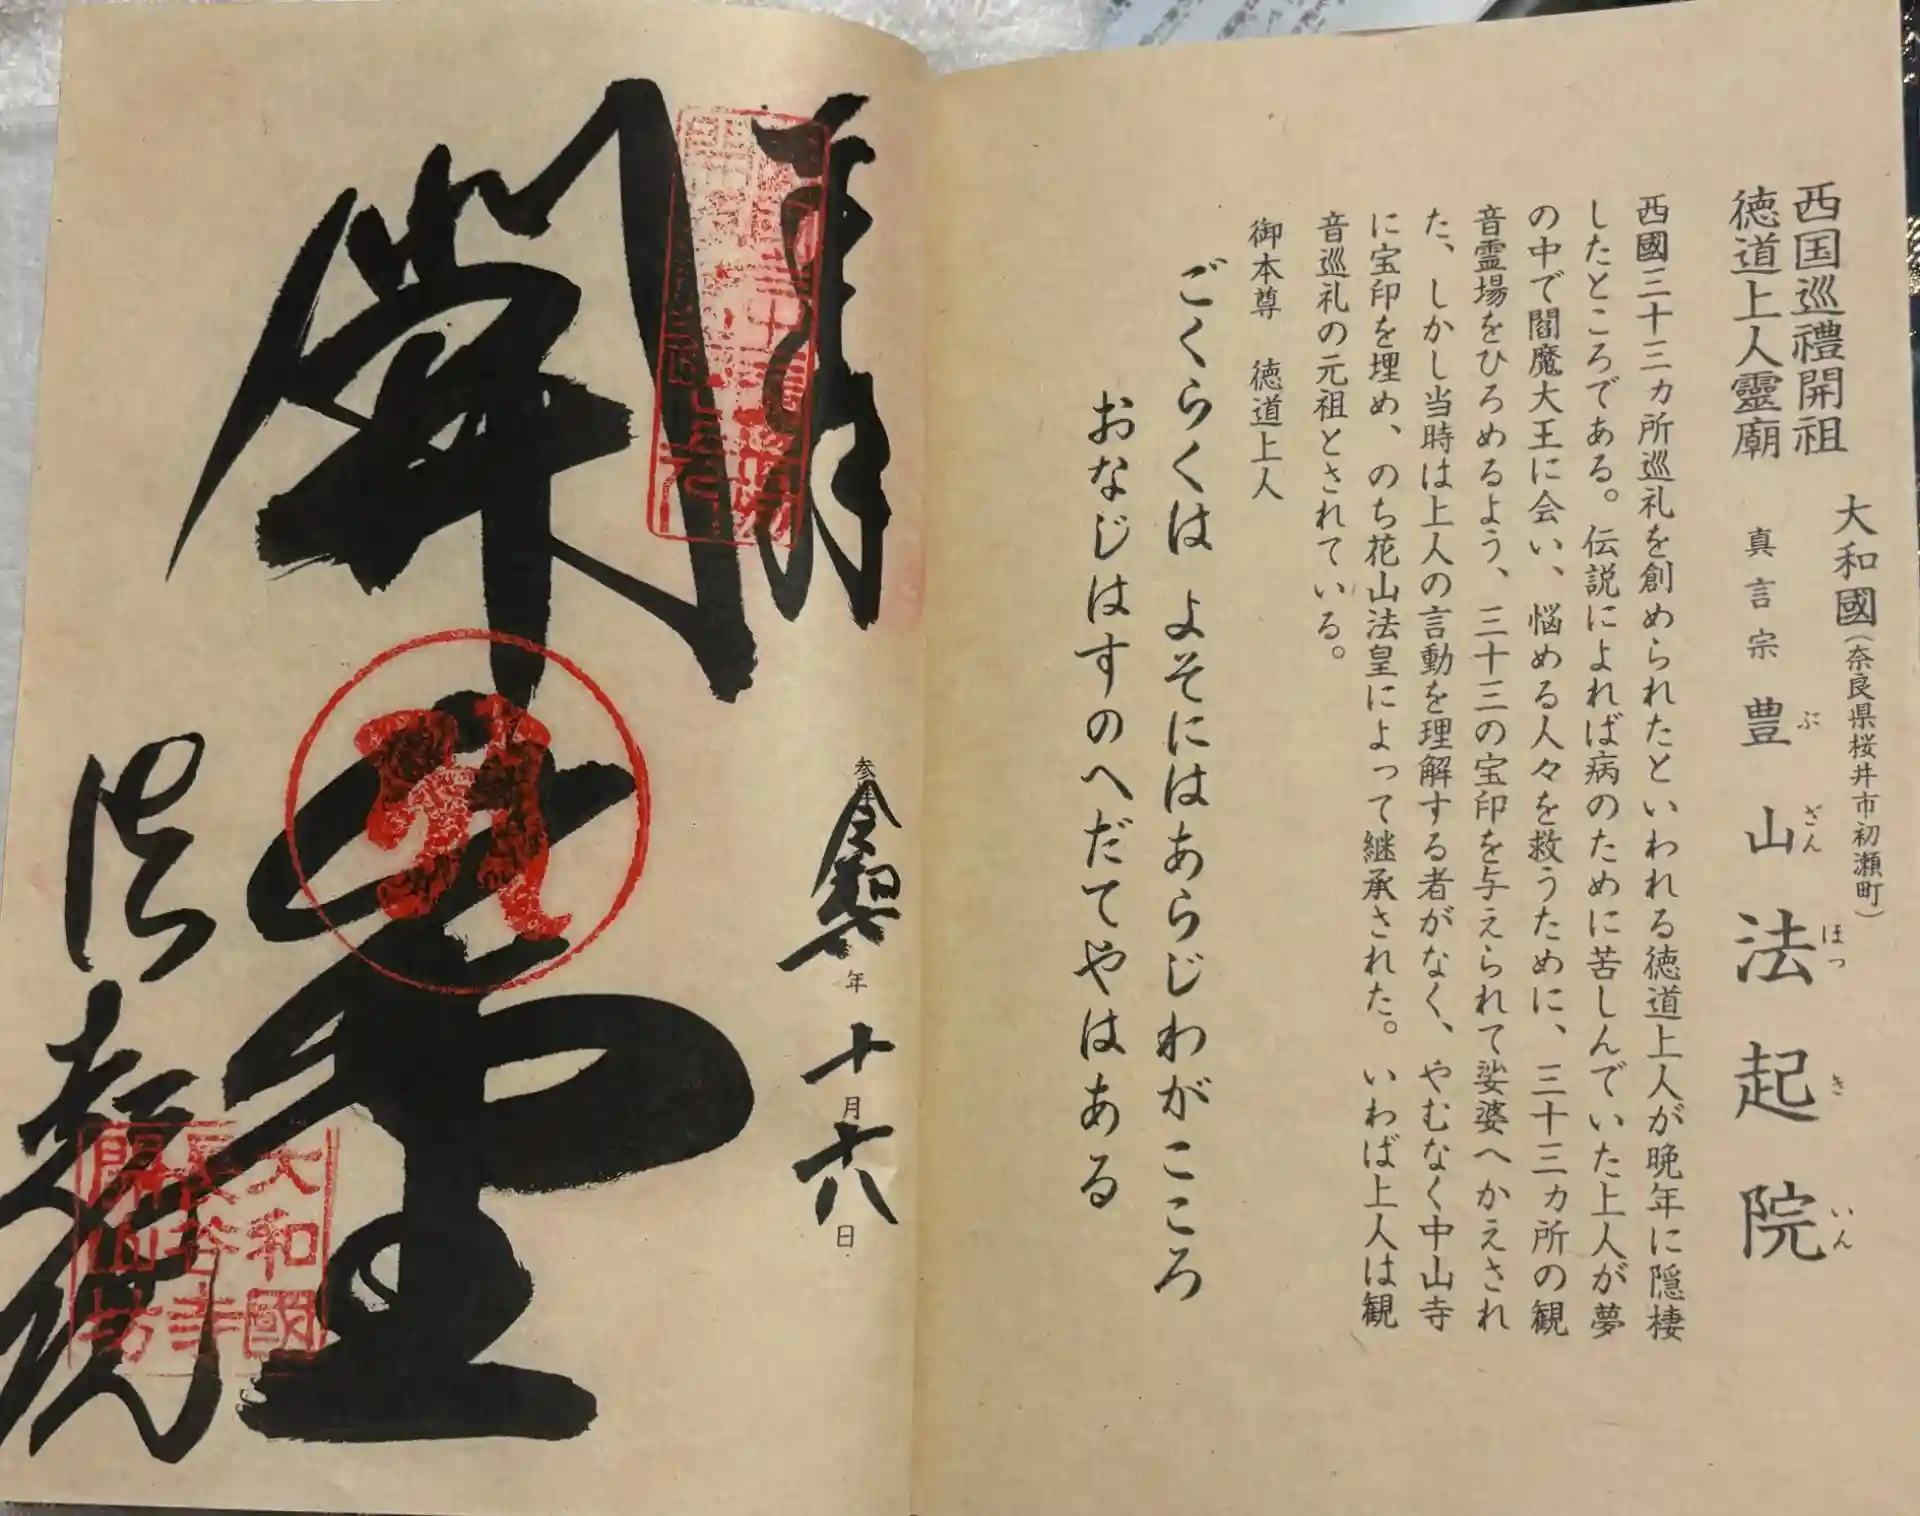 大和國（奈良県桜井市初瀬町）
西国巡禮開祖
徳道上人靈廟
真言宗 豊山法起院
ぶざんほっきいん
西國三十三カ所巡礼を創められたといわれる徳道上人が晩年に隠棲
したところである。伝説によれば病のために苦しんでいた上人が夢
の中で閻魔大王に会い、悩める人々を救うために、三十三カ所の観
音霊場をひろめるよう、三十三の宝印を与えられて娑婆へかえされ
た、しかし当時は上人の言動を理解する者がなく、やむなく中山寺
に宝印を埋め、のち花山法皇によって継承された。いわば上人は観
音巡礼の元祖とされている。
御本尊 徳道上人
ごくらくは よそにはあらじわがこころ
おなじはすのへだてやはある
奉拝
参拝
令和七年十月十八日
開山堂
法起院
大和國
長谷寺
開山坊